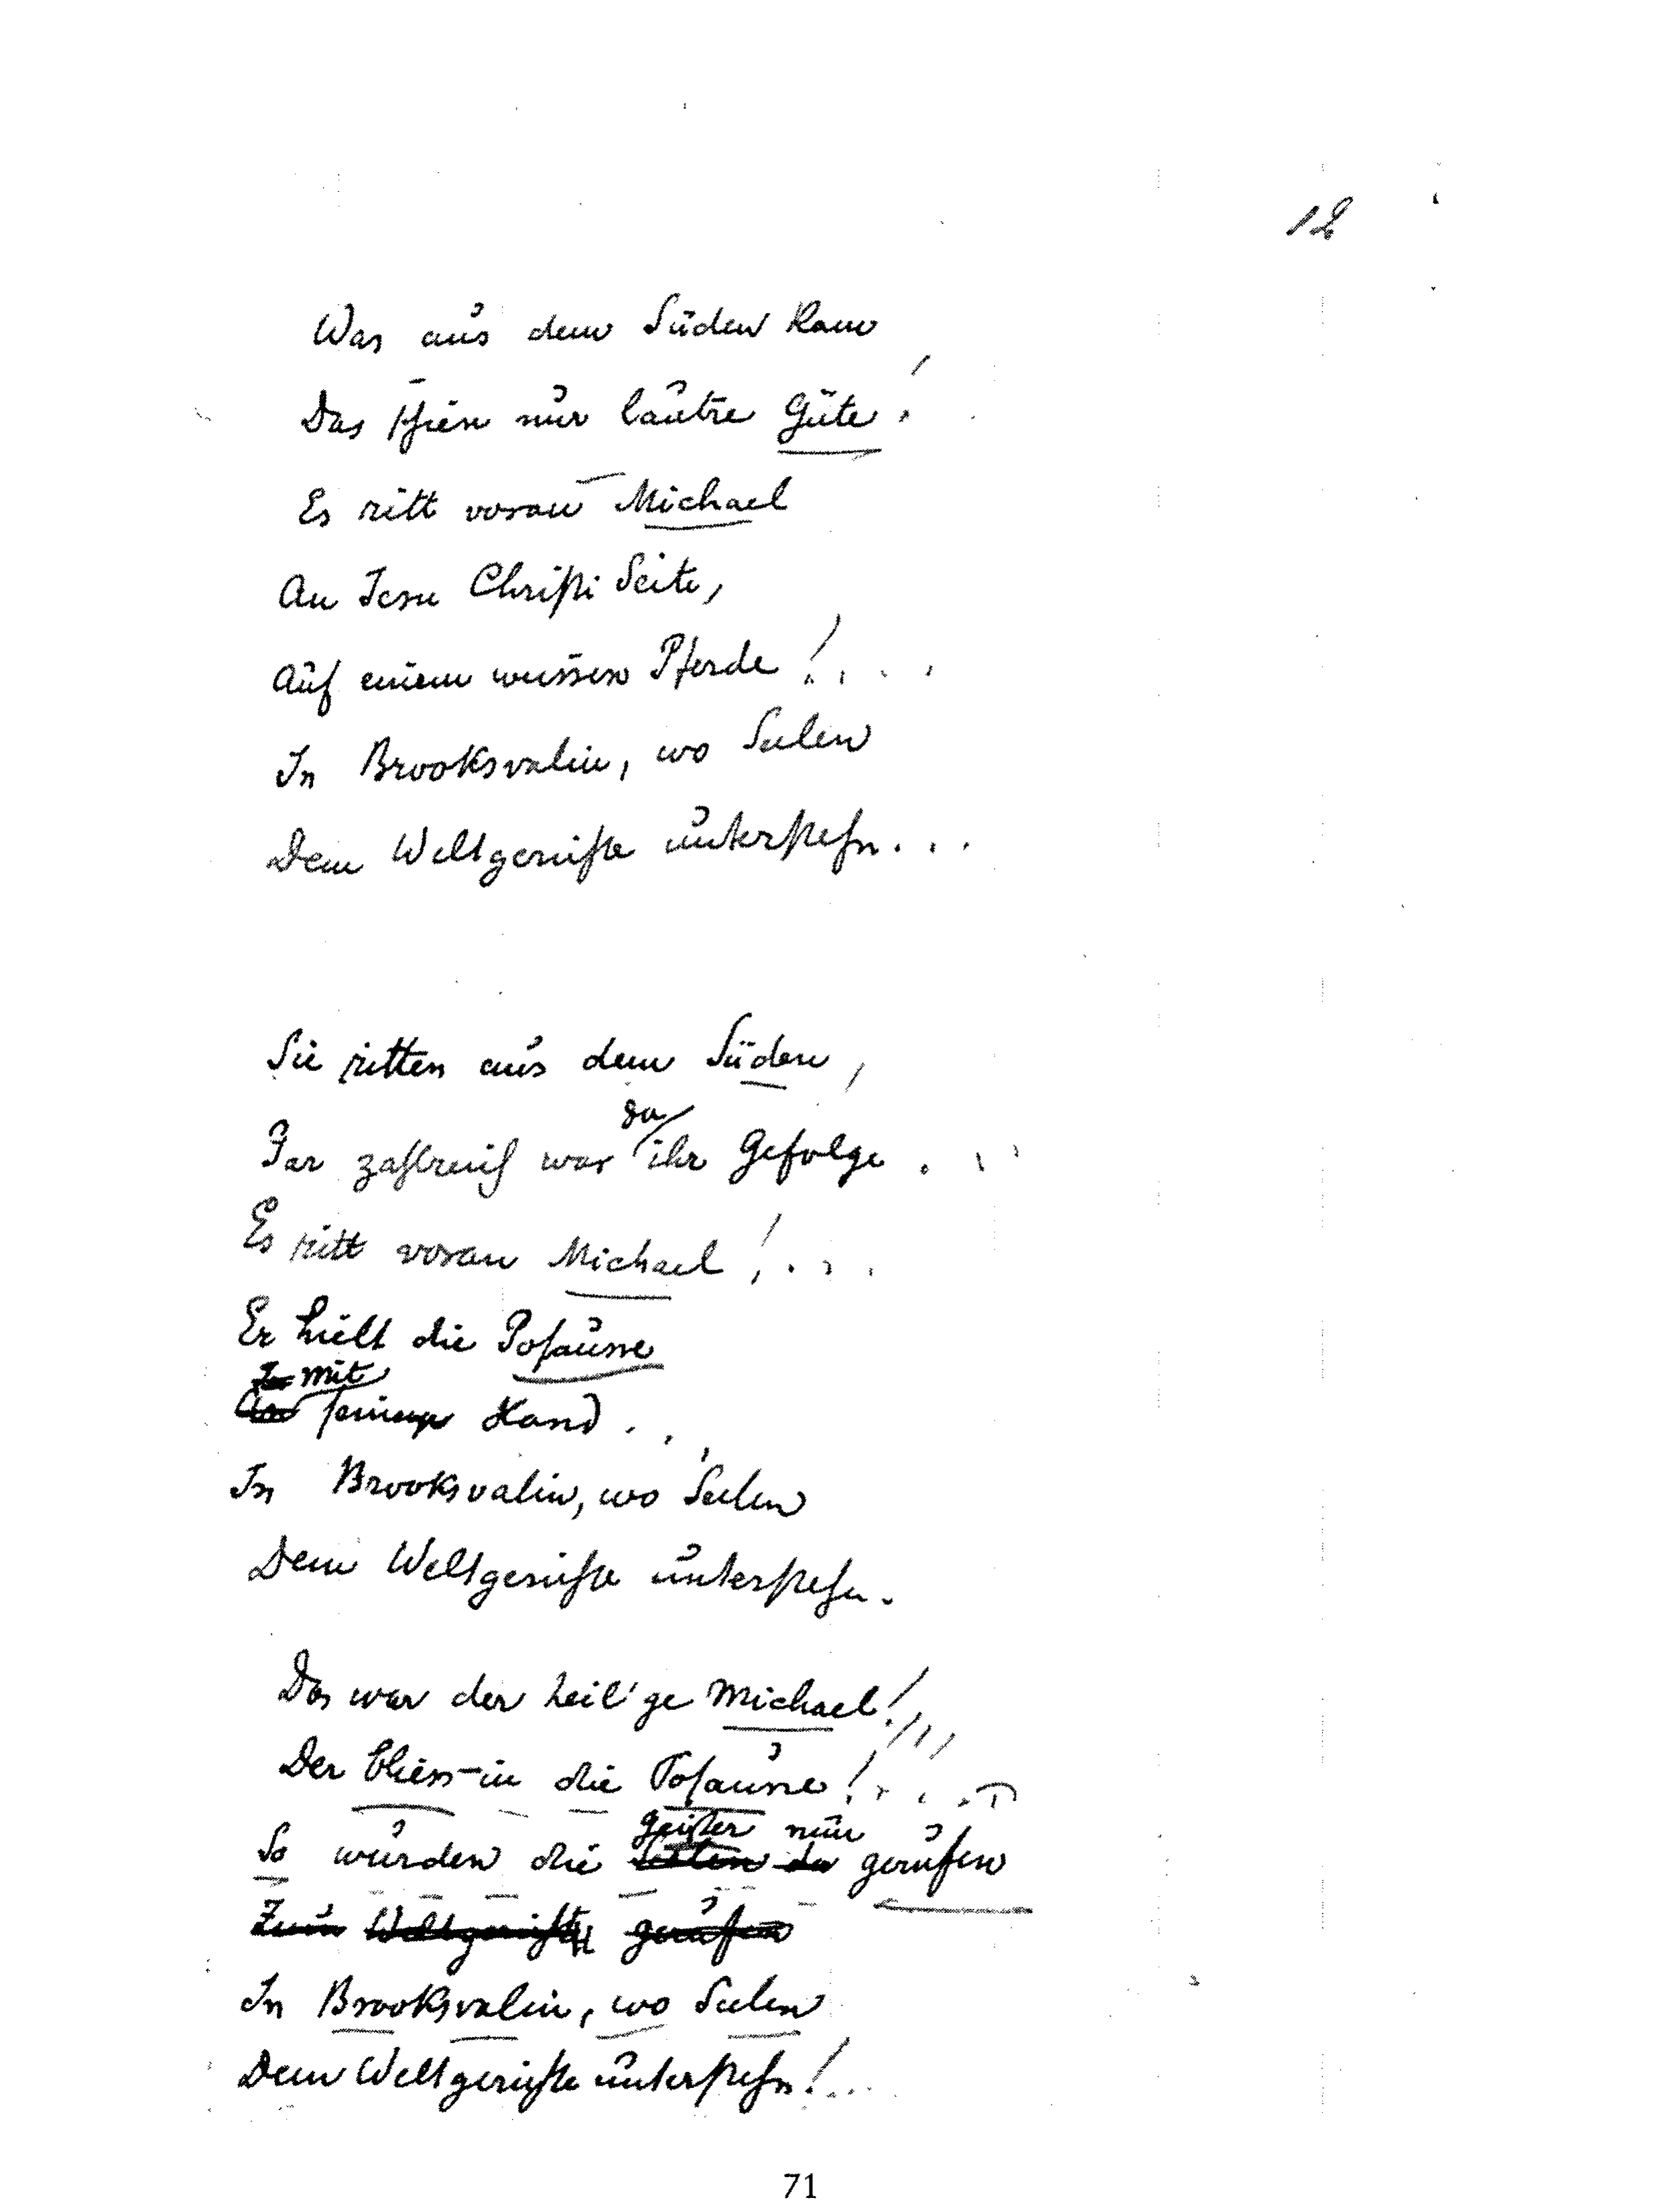 12
Was aus dem Süden kam
Das schien nur lautre Güte!
Es ritt voran Michael
An Jesu Christi Seite,
Auf einem weissen Pferde!...
In Brooksvalin, wo Seelen
Dem Weltgerichte unterstehn...
Sie ritten aus dem Süden,
Gar zahlreich war da ihr Gefolge...
Es ritt voran Michael!...
Er hielt die Posaune
mit
seiner Hand...
In Brooksvalin, wo Seelen
Dem Weltgerichte unterstehn.
Das war der heil'ge Michael!
Der blies in die Posaune!...
Geister nun
So wurden die Seelen da gerufen
Zum Weltgericht gerufen
In Brooksvalin, wo Seelen
Dem Weltgerichte unterstehn!...
71